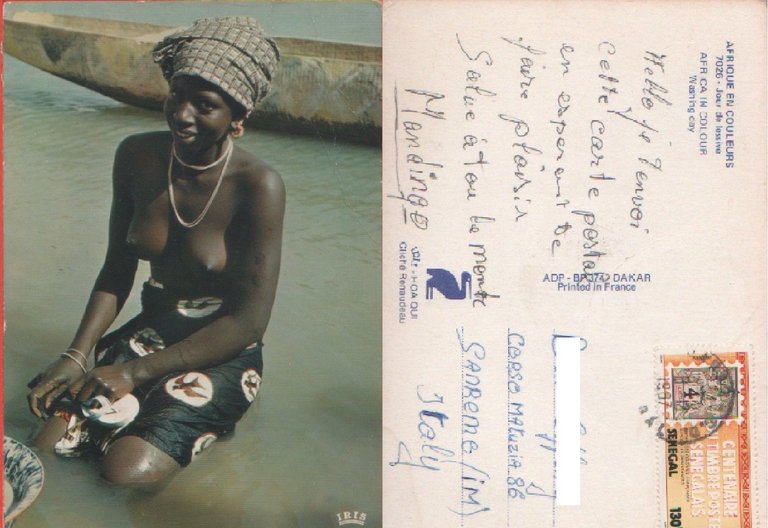 AFRIQUE EN COULEURS
7026 - Jour de lessive
AFRICA IN COLOUR
Washing day
Hello je t'envoi
cette carte postal
en esperant te
faire plaisir
Salue à tou le monde
Mandingo
ADP - BP 3742 DAKAR
Printed in France
Cliché Renaudeau
CORSO MATUZIA 86
SANREMO (IM)
Italy
1987
CENTENAIRE
TIMBRE POSTE
SENEGALAIS
SENEGAL
130
IRIS